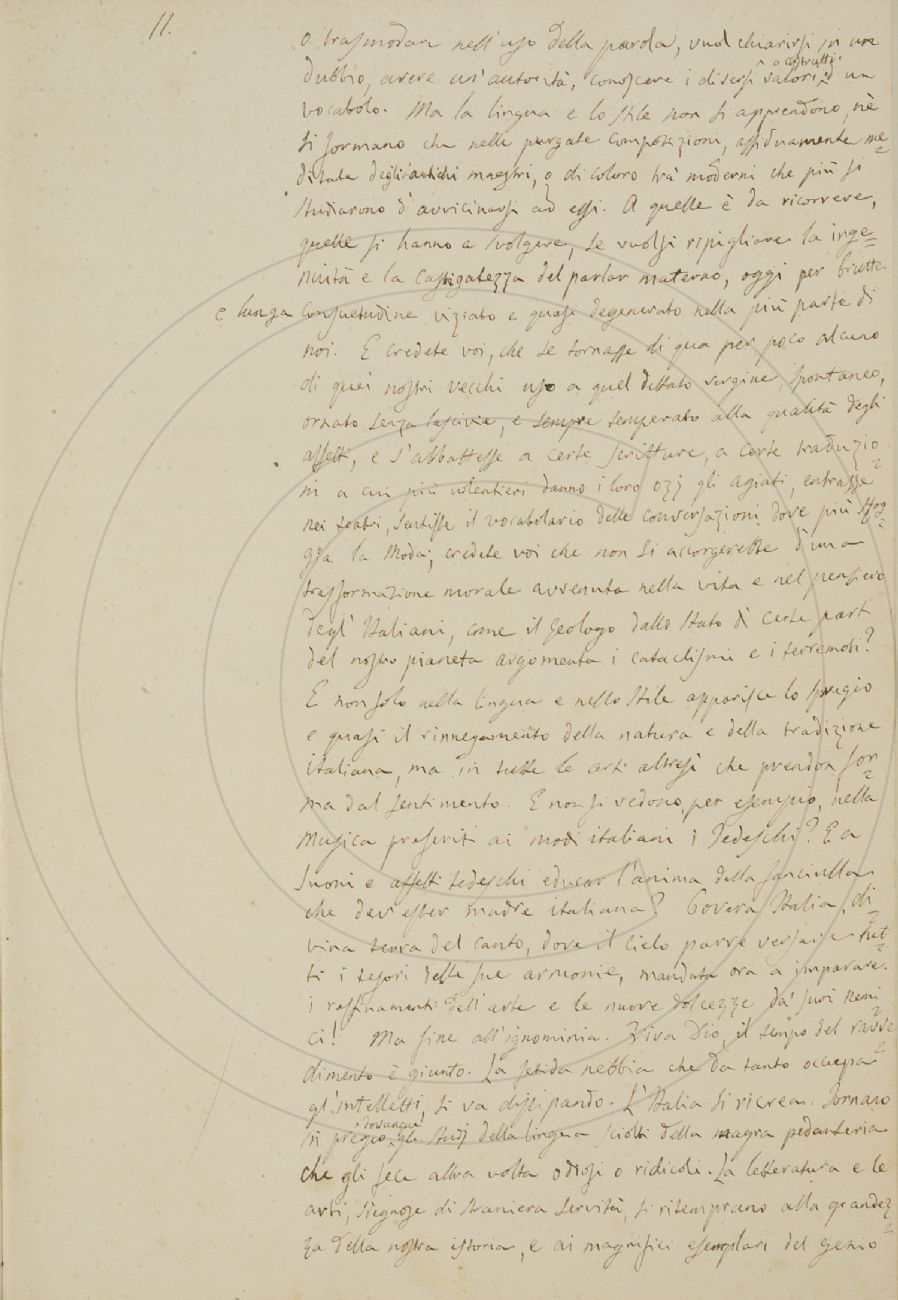 11.
o trasmodare nell'uso della parola, vuol chiarirsi in un
dubbio, avere un'autorità, conoscere i diversi valori, o costrutti d'un
vocabolo. Ma la lingua e lo stile non si apprendono, nè
si formano che nelle purgate composizioni, assiduamente me=
ditate degli antichi maestri, o di coloro tra' moderni che più si
studiarono d'avvicinarsi ad essi. A quelle è da ricorrere,
quelle si hanno a svolgere, se vuolsi ripigliare la inge=
nuità e la castigatezza del parlar materno, oggi per brutta
e lunga consuetudine viziato e quasi degenerato nella più parte di
noi. E credete voi, che se tornasse di qua per poco alcuno
di quei nostri vecchi uso a quel dettato vergine, spontaneo,
ornato senza lascivie, e sempre temperato alla qualità degli
affetti, e s'abbattesse a certe scritture, a certe traduzio=
ni a cui più volentieri danno i loro ozj gli agiati, entrasse
nei teatri, sentisse il vocabolario delle conversazioni dove più sfog=
gia la Moda; credete voi che non si accorgerebbe d'una
trasformazione morale avvenuta nella vita e nel pensiero
degl'Italiani, come il geologo dallo stato di certe parti
del nostro pianeta argomenta i cataclismi e i terremoti?
E non solo nella lingua e nello stile apparisce lo spregio
e quasi il rinnegamento della natura e della tradizione
italiana, ma in tutte le arti altresì che prendon for=
ma dal sentimento. E non si vedono, per esempio, nella
Musica preferiti ai modi italiani i Tedeschi? E a
suoni e affetti tedeschi educar l'anima della fanciulla
che dev'esser madre italiana? Povera Italia, di=
vina terra del canto, dove il cielo parve versasse tut=
ti i tesori delle sue armonie, mandata ora a imparare
i raffinamenti dell'arte e le nuove dolcezze da' suoi nemi=
ci! Ma fine all'ignominia. Viva Dio, il tempo del ravve=
dimento è giunto. La fetida nebbia che da tanto occupa
gl'intelletti, si va dissipando. L'Italia si ricrea. Tornano
in pregio dovunque gli studj della lingua sciolti della magra pedanteria
che gli fece altra volta odiosi o ridicoli. La letteratura e le
arti, sdegnose di straniera servitù, si ritemprano alla grandez=
za della nostra istoria, e ai magnifici esemplari del genio